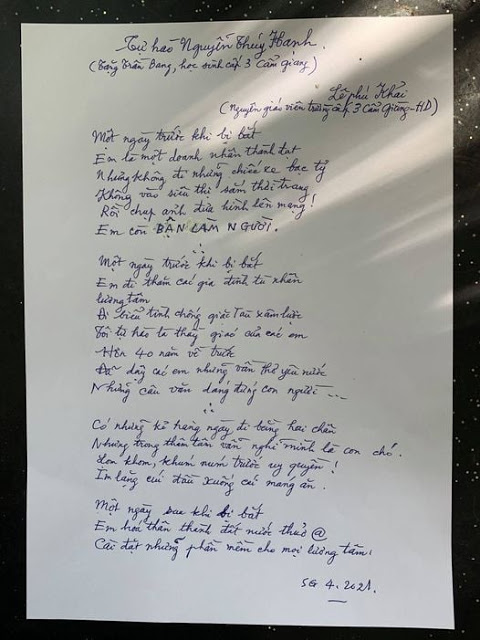 Tự hào Nguyễn Thúy Hạnh.
(Tặng Trần Bang, học sinh cấp 3 Cẩm Giàng)
Lê Phú Khải
(Nguyên giáo viên trường cấp 3 Cẩm Giàng-HD)
Một ngày trước khi bị bắt
Em là một doanh nhân thành đạt
Nhưng không đi những chiếc xe bạc tỷ
Không vào siêu thị sắm thời trang
Rồi chụp ảnh đưa hình lên mạng!
Em còn BẬN LÀM NGƯỜI.
Một ngày trước khi bị bắt
Em đi thăm các gia đình tù nhân
lương tâm
Đi biểu tình chống giặc Tàu xâm lược
Tôi tự hào là thầy giáo của các em
Hơn 40 năm về trước
Đã dạy các em những vần thơ yêu nước
Những câu văn dáng đứng con người ...
Có những kẻ hàng ngày đi bằng hai chân
Nhưng trong thâm tâm vẫn nghĩ mình là con chó.
Lon khom, khúm núm trước uy quyền!
Im lặng cúi đầu xuống cái máng ăn.
Một ngày sau khi bị bắt
Em hoá thân thành đất nước thuở @
Cài đặt những phần mềm cho mọi lương tâm!
SG 4.2021.